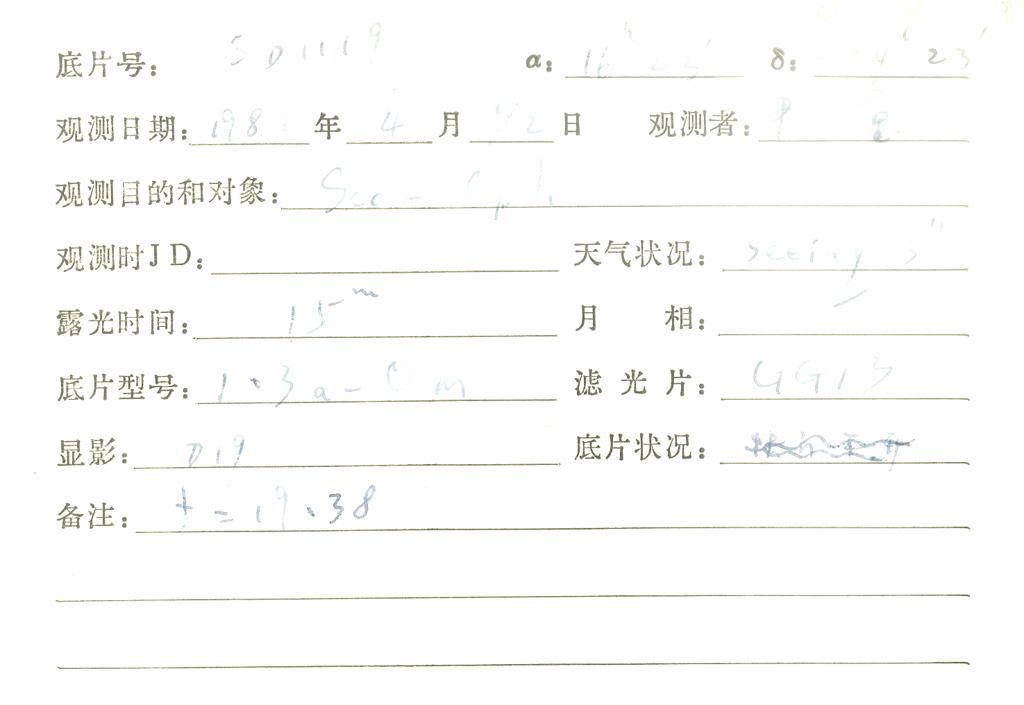 底片号: SD1119 α: 16h 23' δ: 24° 23'
观测日期: 198 年 4 月 日 观测者:
观测目的和对象: Sco - Oph
观测时JD: 天气状况: seeing 3"
露光时间: 15m 月 相:
底片型号: 1.3a-O m 滤光片: GG13
显影: D19 底片状况:
备注: t = 19.38